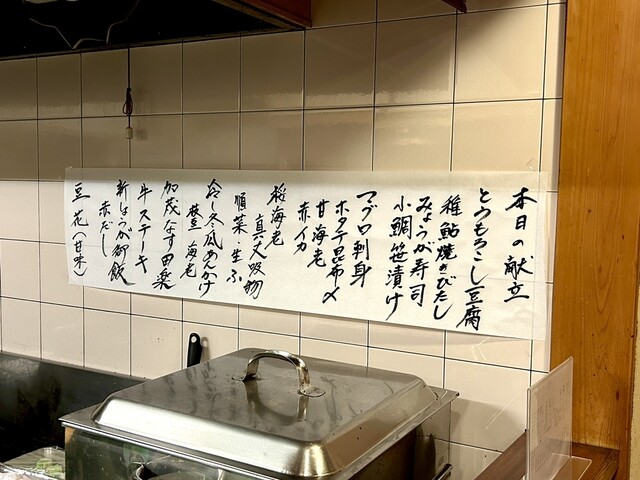 本日の献立
とうもろこし豆腐
稚鮎焼きびたし
みょうが寿司
小鯛笹漬け
マグロ刺身
ホタテ昆布〆
甘海老
赤イカ
桜海老
真丈吸物
順菜・生ふ
冷冬瓜あんかけ
登海老
加茂なす田楽
牛ステーキ
新しょうが御飯
赤だし
豆花(甘味)